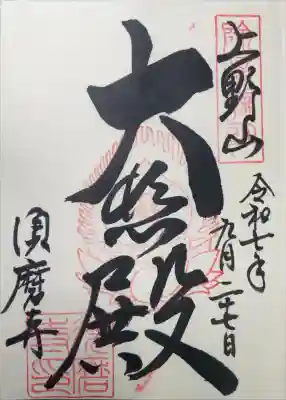 上野山
令和七年九月二十七日
大悲殿
須磨寺